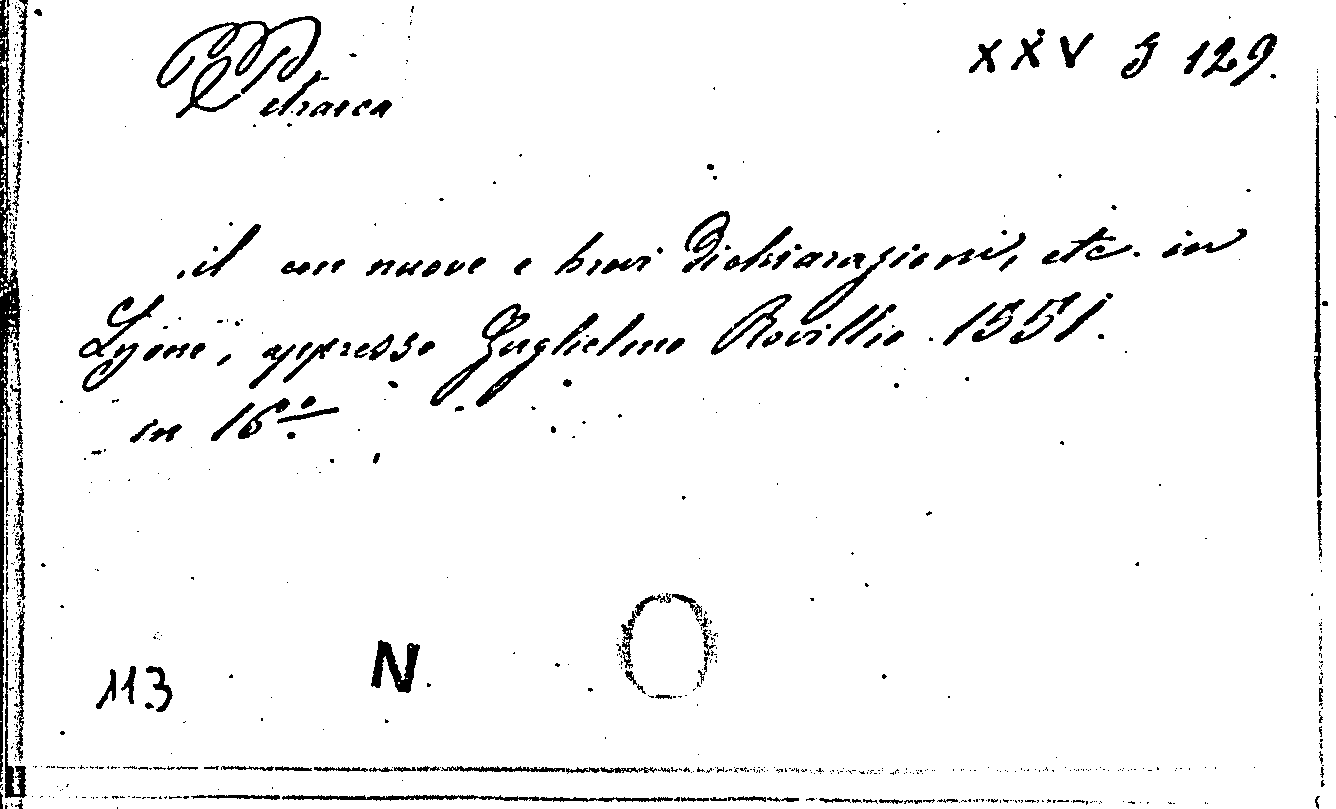 Petrarca
XXV G 129.
il con nuove e brevi Dichiarazioni, etc. in
Lyone, appresso Guglielmo Rovillio. 1551.
in 16º
113
N